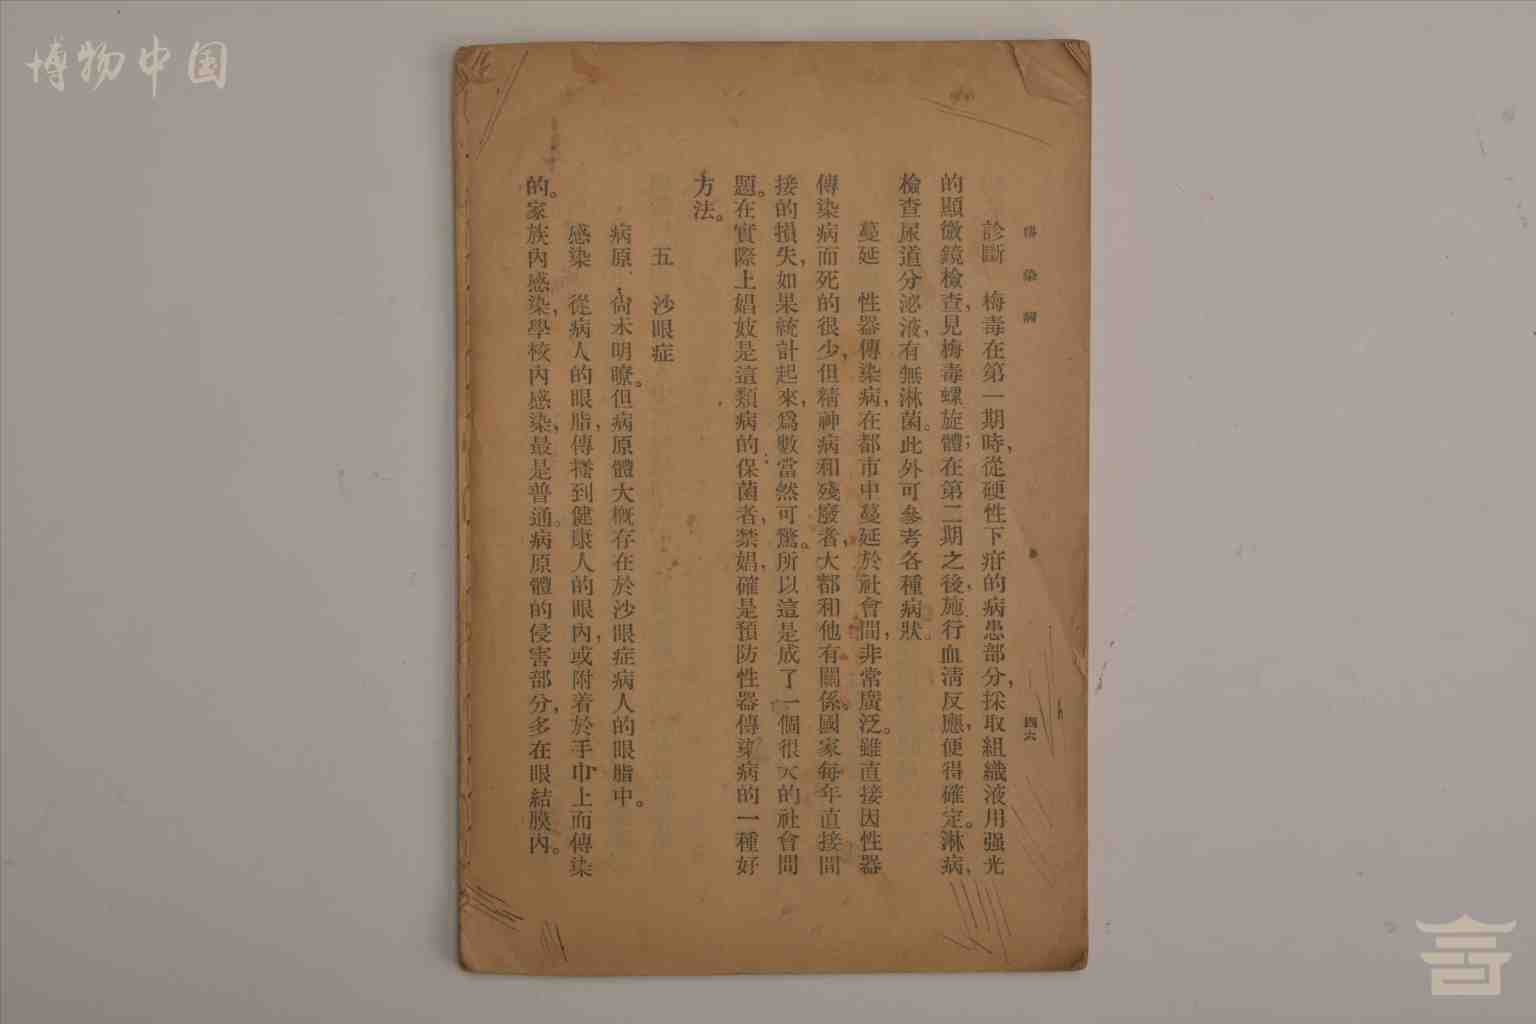 博物中国
傳染病
四六
診斷　梅毒在第一期時，從硬性下疳的病患部分，採取組織液用强光
的顯微鏡檢查，見梅毒螺旋體；在第二期之後，施行血淸反應，便得確定。淋病，
檢查尿道分泌液，有無淋菌。此外可參考各種病狀。
蔓延　性器傳染病，在都市中蔓延於社會間，非常廣泛。雖直接因性器
傳染病而死的很少，但精神病和殘廢者，大都和他有關係。國家每年直接間
接的損失，如果統計起來，爲數當然可驚。所以這是成了一個很大的社會問
題。在實際上娼妓是這類病的保菌者，禁娼，確是預防性器傳染病的一種好
方法。
五　沙眼症
病原　尙未明瞭。但病原體大概存在於沙眼症病人的眼脂中。
感染　從病人的眼脂，傳播到健康人的眼內，或附着於手巾上而傳染
的。家族內感染，學校內感染，最是普通。病原體的侵害部分，多在眼結膜內。